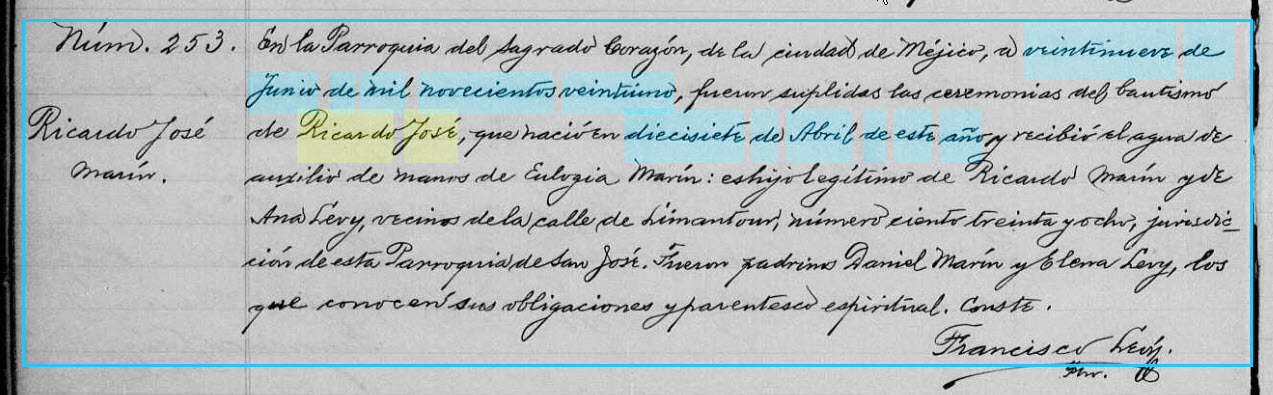 Núm. 253. En la Parroquia del Sagrado Corazón, de la ciudad de Méjico, a veintinueve de
Junio de mil novecientos veintiuno, fueron suplidas las ceremonias del bautismo
Ricardo José de Ricardo José, que nació en diecisiete de Abril de este año y recibió el agua de
Marín. auxilio de manos de Eulogia Marín: es hijo legítimo de Ricardo Marín y de
Ana Lévy, vecinos de la calle de Limantour, número ciento treinta y ocho, jurisdic-
ción de esta Parroquia de San José. Fueron padrinos Daniel Marín y Elena Levy, los
que conocen sus obligaciones y parentesco espiritual. Conste.
Francisco Levy.